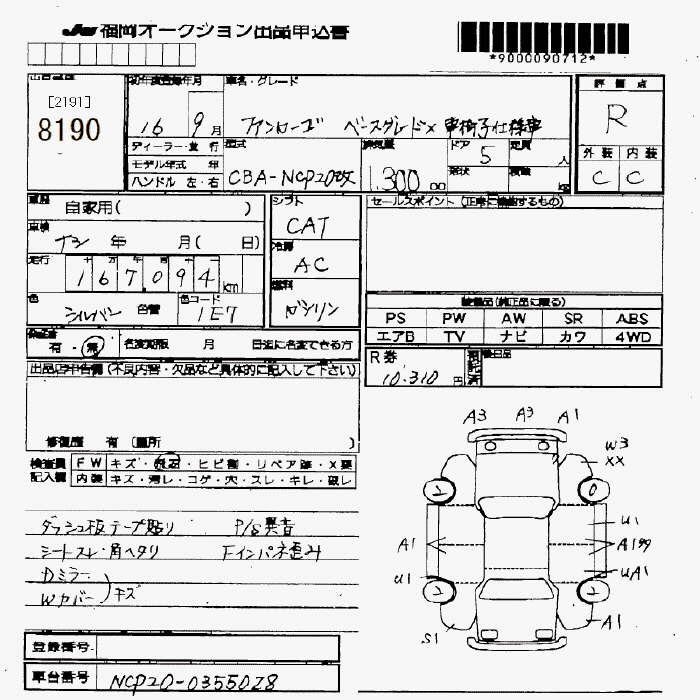 JU 福岡オークション出品申込書
*9000090712*
[2191]
8190
初年度登録年月
車名・グレード
評価点
16 9月
ファンカーゴ ベースグレード× 車椅子仕様車
R
ディーラー・並行
モデル年式 年
ハンドル 左・右
型式
CBA-NCP20改
排気量
1.300
ドア
5
定員
人
形状
積載
kg
外装 内装
C C
車歴
自家用( )
車検
年 月( 日)
走行
167,094 km
色
シルバー 色替
色コード
1E7
シフト
CAT
冷房
AC
燃料
ガソリン
セールスポイント (正常に機能するもの)
装備品(純正品に限る)
PS PW AW SR ABS
エアB TV ナビ カワ 4WD
有・無
名変期限 月 日迄に名変できる方
R券
10.310 円
後日品
出品店申告欄(不良内容・欠品など具体的に記入して下さい)
修復歴 有 〔箇所 〕
検査員
記入欄
FW キズ・飛石・ヒビ割・リペア跡・X要
内装 キズ・汚レ・コゲ・穴・スレ・キレ・破レ
ダッシュ板テープ貼り P/S異音
シートスレ・角ヘタリ Fインパネ歪み
Dミラー
Wカバー キズ
A3 A3 A1
W3
XX
U1
A1
A1
U1
UA1
S1
A1
登録番号
車台番号 NCP20-0355028